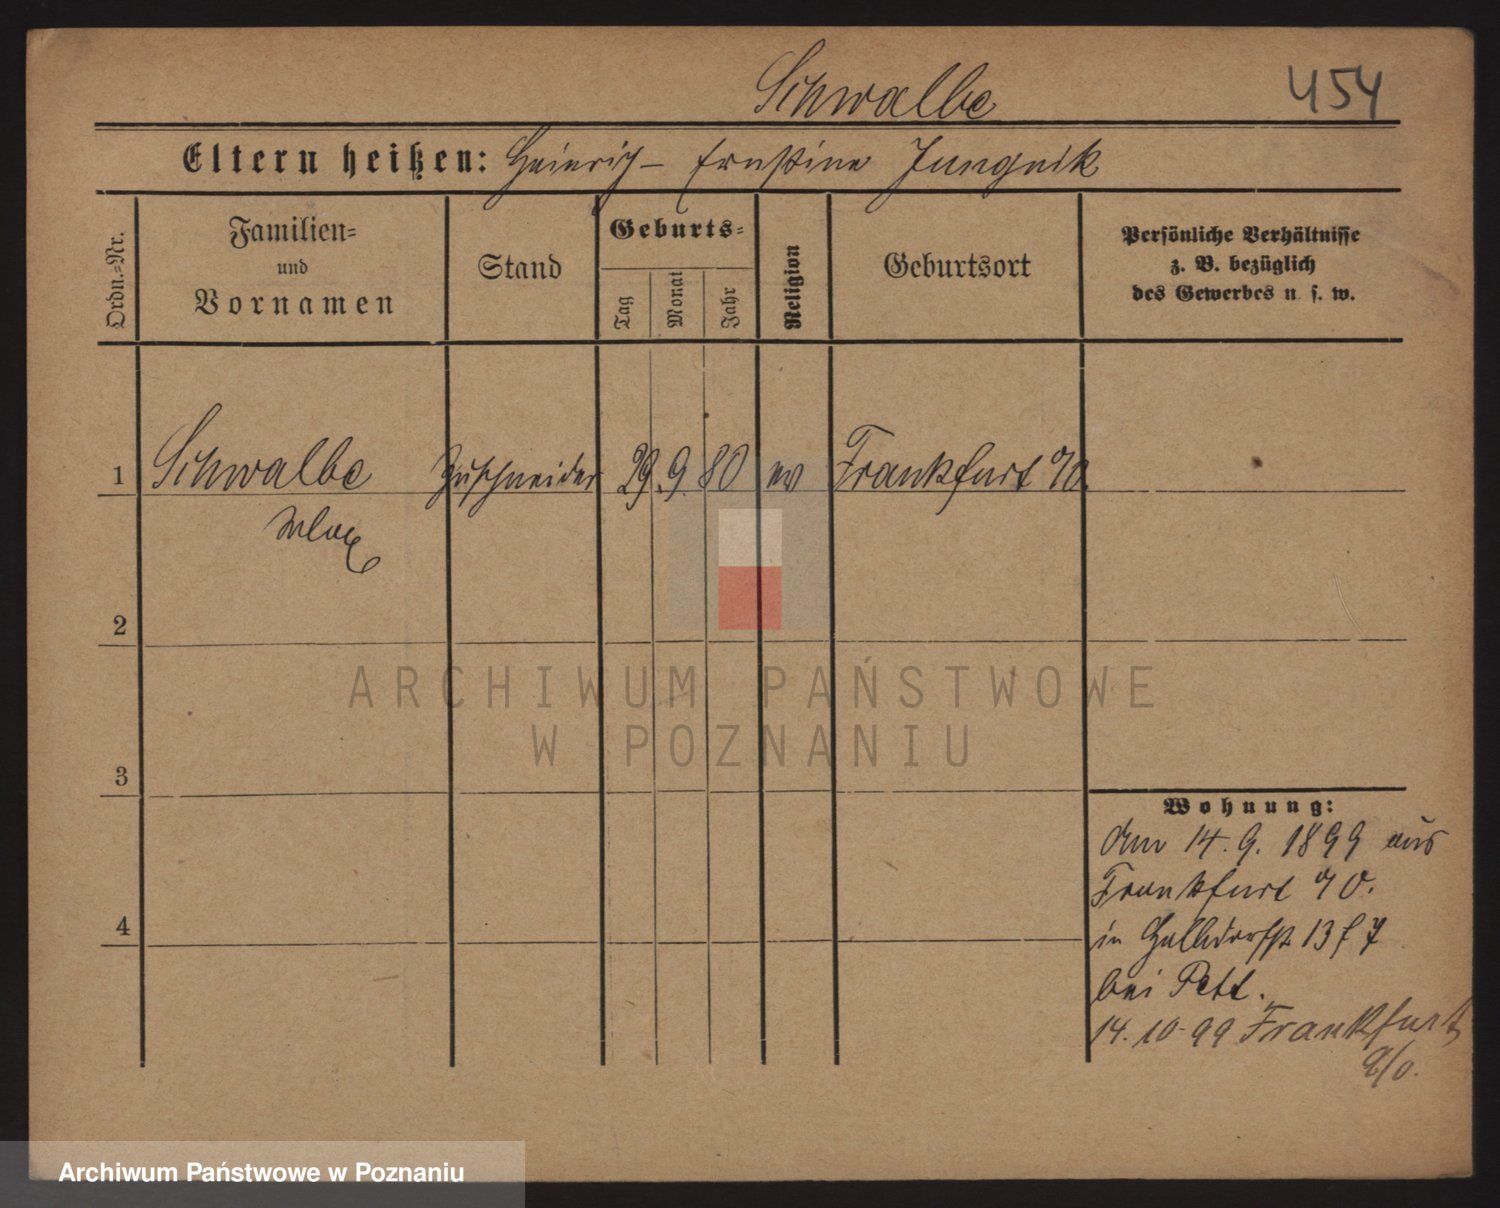 Schwalbe 454
Eltern heißen: Heinrich – Ernstine Jungnik
Ordn.=Nr.
Familien=
und
Vornamen
Stand
Geburts=
Tag Monat Jahr
Religion
Geburtsort
Persönliche Verhältnisse
z. B. bezüglich
des Gewerbes u. s. w.
1 Schwalbe Zuschneider 29. 9. 80 ev Frankfurt a/O.
Max
2
3
4
Wohnung:
Am 14. 9. 1899 aus
Frankfurt a/O.
in 13
bei
14. 10. 99 Frankfurt
a/o.
ARCHIWUM PAŃSTWOWE
W POZNANIU
Archiwum Państwowe w Poznaniu